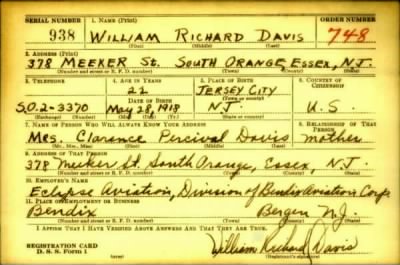 SERIAL NUMBER 1. NAME (Print) ORDER NUMBER
938 WILLIAM RICHARD DAVIS 748
(First) (Middle) (Last)
2. ADDRESS (Print)
378 MEEKER St. SOUTH ORANGE, ESSEX, N.J.
(Number and street or R. F. D. number) (Town) (County) (State)
3. TELEPHONE 4. AGE IN YEARS 5. PLACE OF BIRTH 6. COUNTRY OF CITIZENSHIP
22 JERSEY CITY
DATE OF BIRTH (Town or county)
S.O.2-3370 May 28, 1918 N.J. U.S.
(Exchange) (Number) (Mo.) (Day) (Yr.) (State or country)
7. NAME OF PERSON WHO WILL ALWAYS KNOW YOUR ADDRESS 8. RELATIONSHIP OF THAT PERSON
Mrs. Clarence Percival Davis mother
(Mr., Mrs., Miss) (First) (Middle) (Last)
9. ADDRESS OF THAT PERSON
378 Meeker St. South Orange, Essex, N.J.
(Number and street or R. F. D. number) (Town) (County) (State)
10. EMPLOYER'S NAME
Eclipse Aviation, Division of Bendix Aviation Corp.
11. PLACE OF EMPLOYMENT OR BUSINESS
Bendix Bergen N.J.
(Number and street or R. F. D. number) (Town) (County) (State)
I AFFIRM THAT I HAVE VERIFIED ABOVE ANSWERS AND THAT THEY ARE TRUE.
REGISTRATION CARD
D. S. S. Form 1 William Richard Davis
(Registrant's signature)